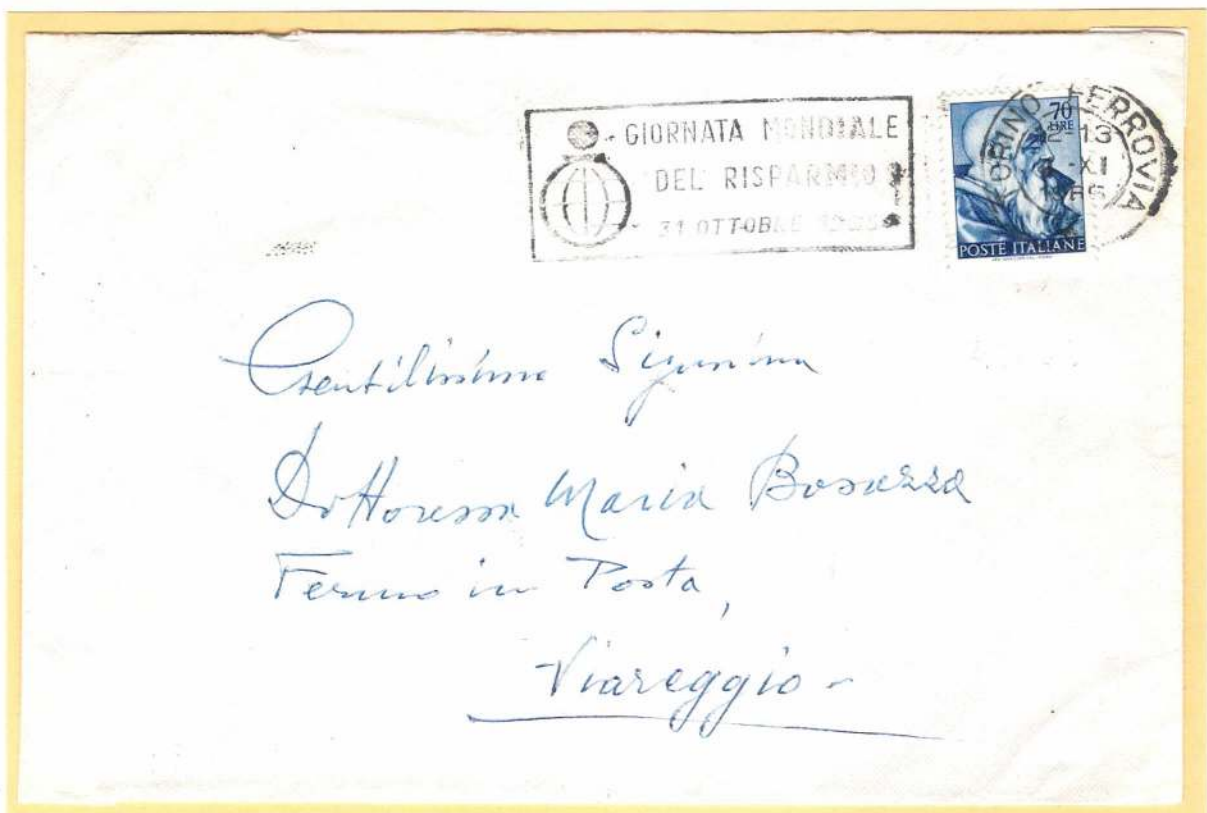 GIORNATA MONDIALE
DEL RISPARMIO
31 OTTOBRE
70
LIRE
POSTE ITALIANE
TORINO FERROVIA
12-13
XI
Gentilissima Signorina
Dottoressa Maria Bosazza
Fermo in Posta,
Viareggio-